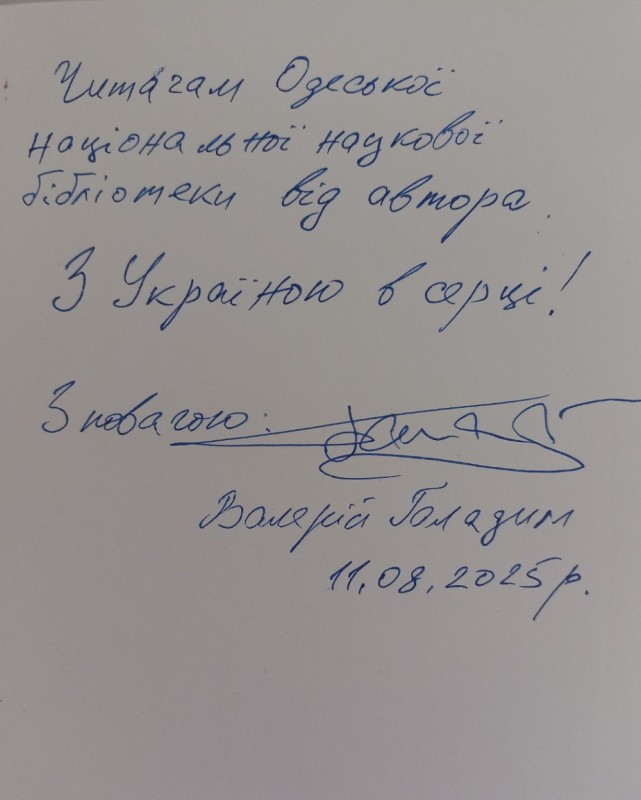 Читачам Одеської
національної наукової
бібліотеки від автора.
З Україною в серці!
З повагою:
Валерій
11.08.2025р.